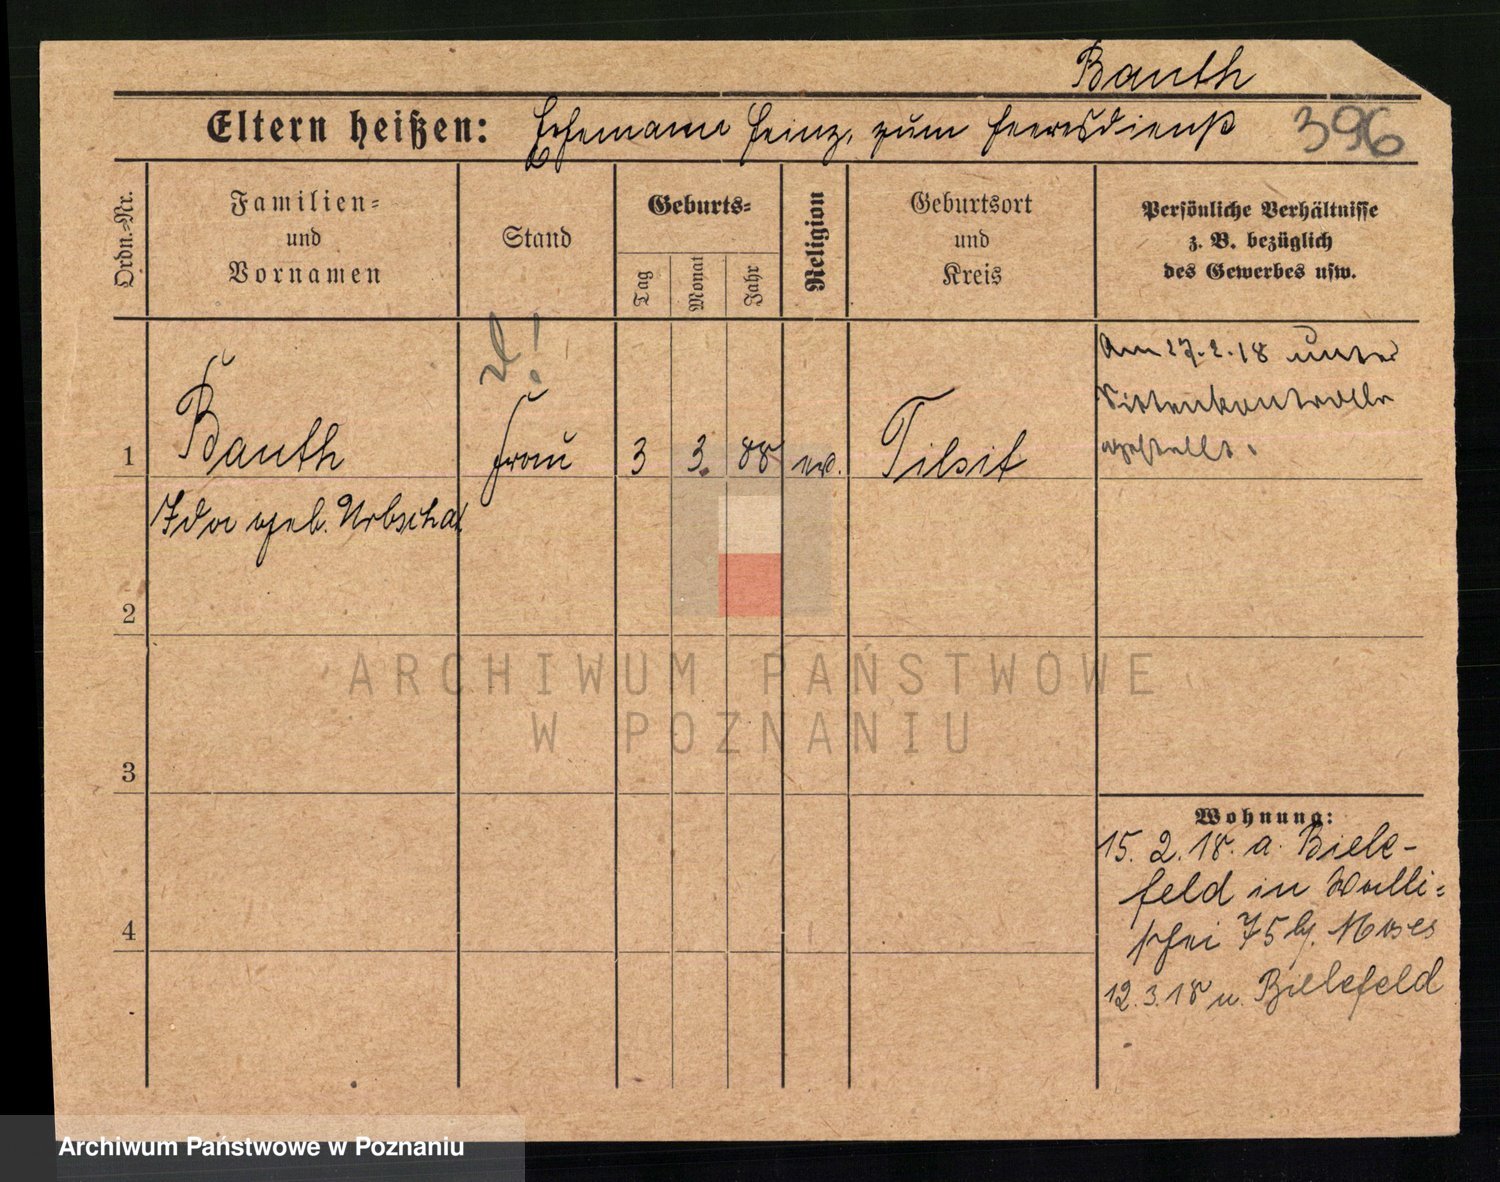 Bauth
Eltern heißen: Ehemann Heinz, zum Heeresdienst 396
Ordn.-Nr.
Familien-
und
Vornamen
Stand
Geburts-
Tag
Monat
Jahr
Religion
Geburtsort
und
Kreis
Persönliche Verhältnisse
z. B. bezüglich
des Gewerbes usw.
D!
1 Bauth Frau 3 3. 88 ev. Tilsit
Ida geb. Urbschat
Am 27.2.18 unter
Sittenkontrolle
gestellt.
2
ARCHIWUM PAŃSTWOWE
W POZNANIU
3
4
Wohnung:
15. 2. 18. a. Biele-
feld in Walli-
schei 75 b/. Moses
12.3.18 n. Bielefeld
Archiwum Państwowe w Poznaniu